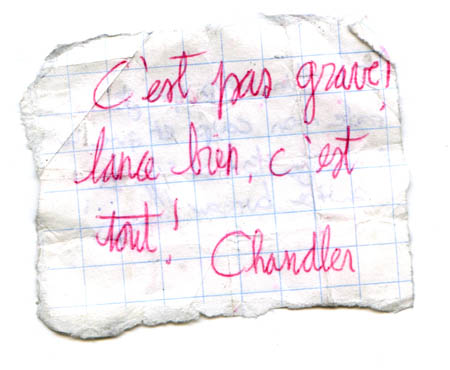 C'est pas grave!
lance bien, c'est
tout!
Chandler